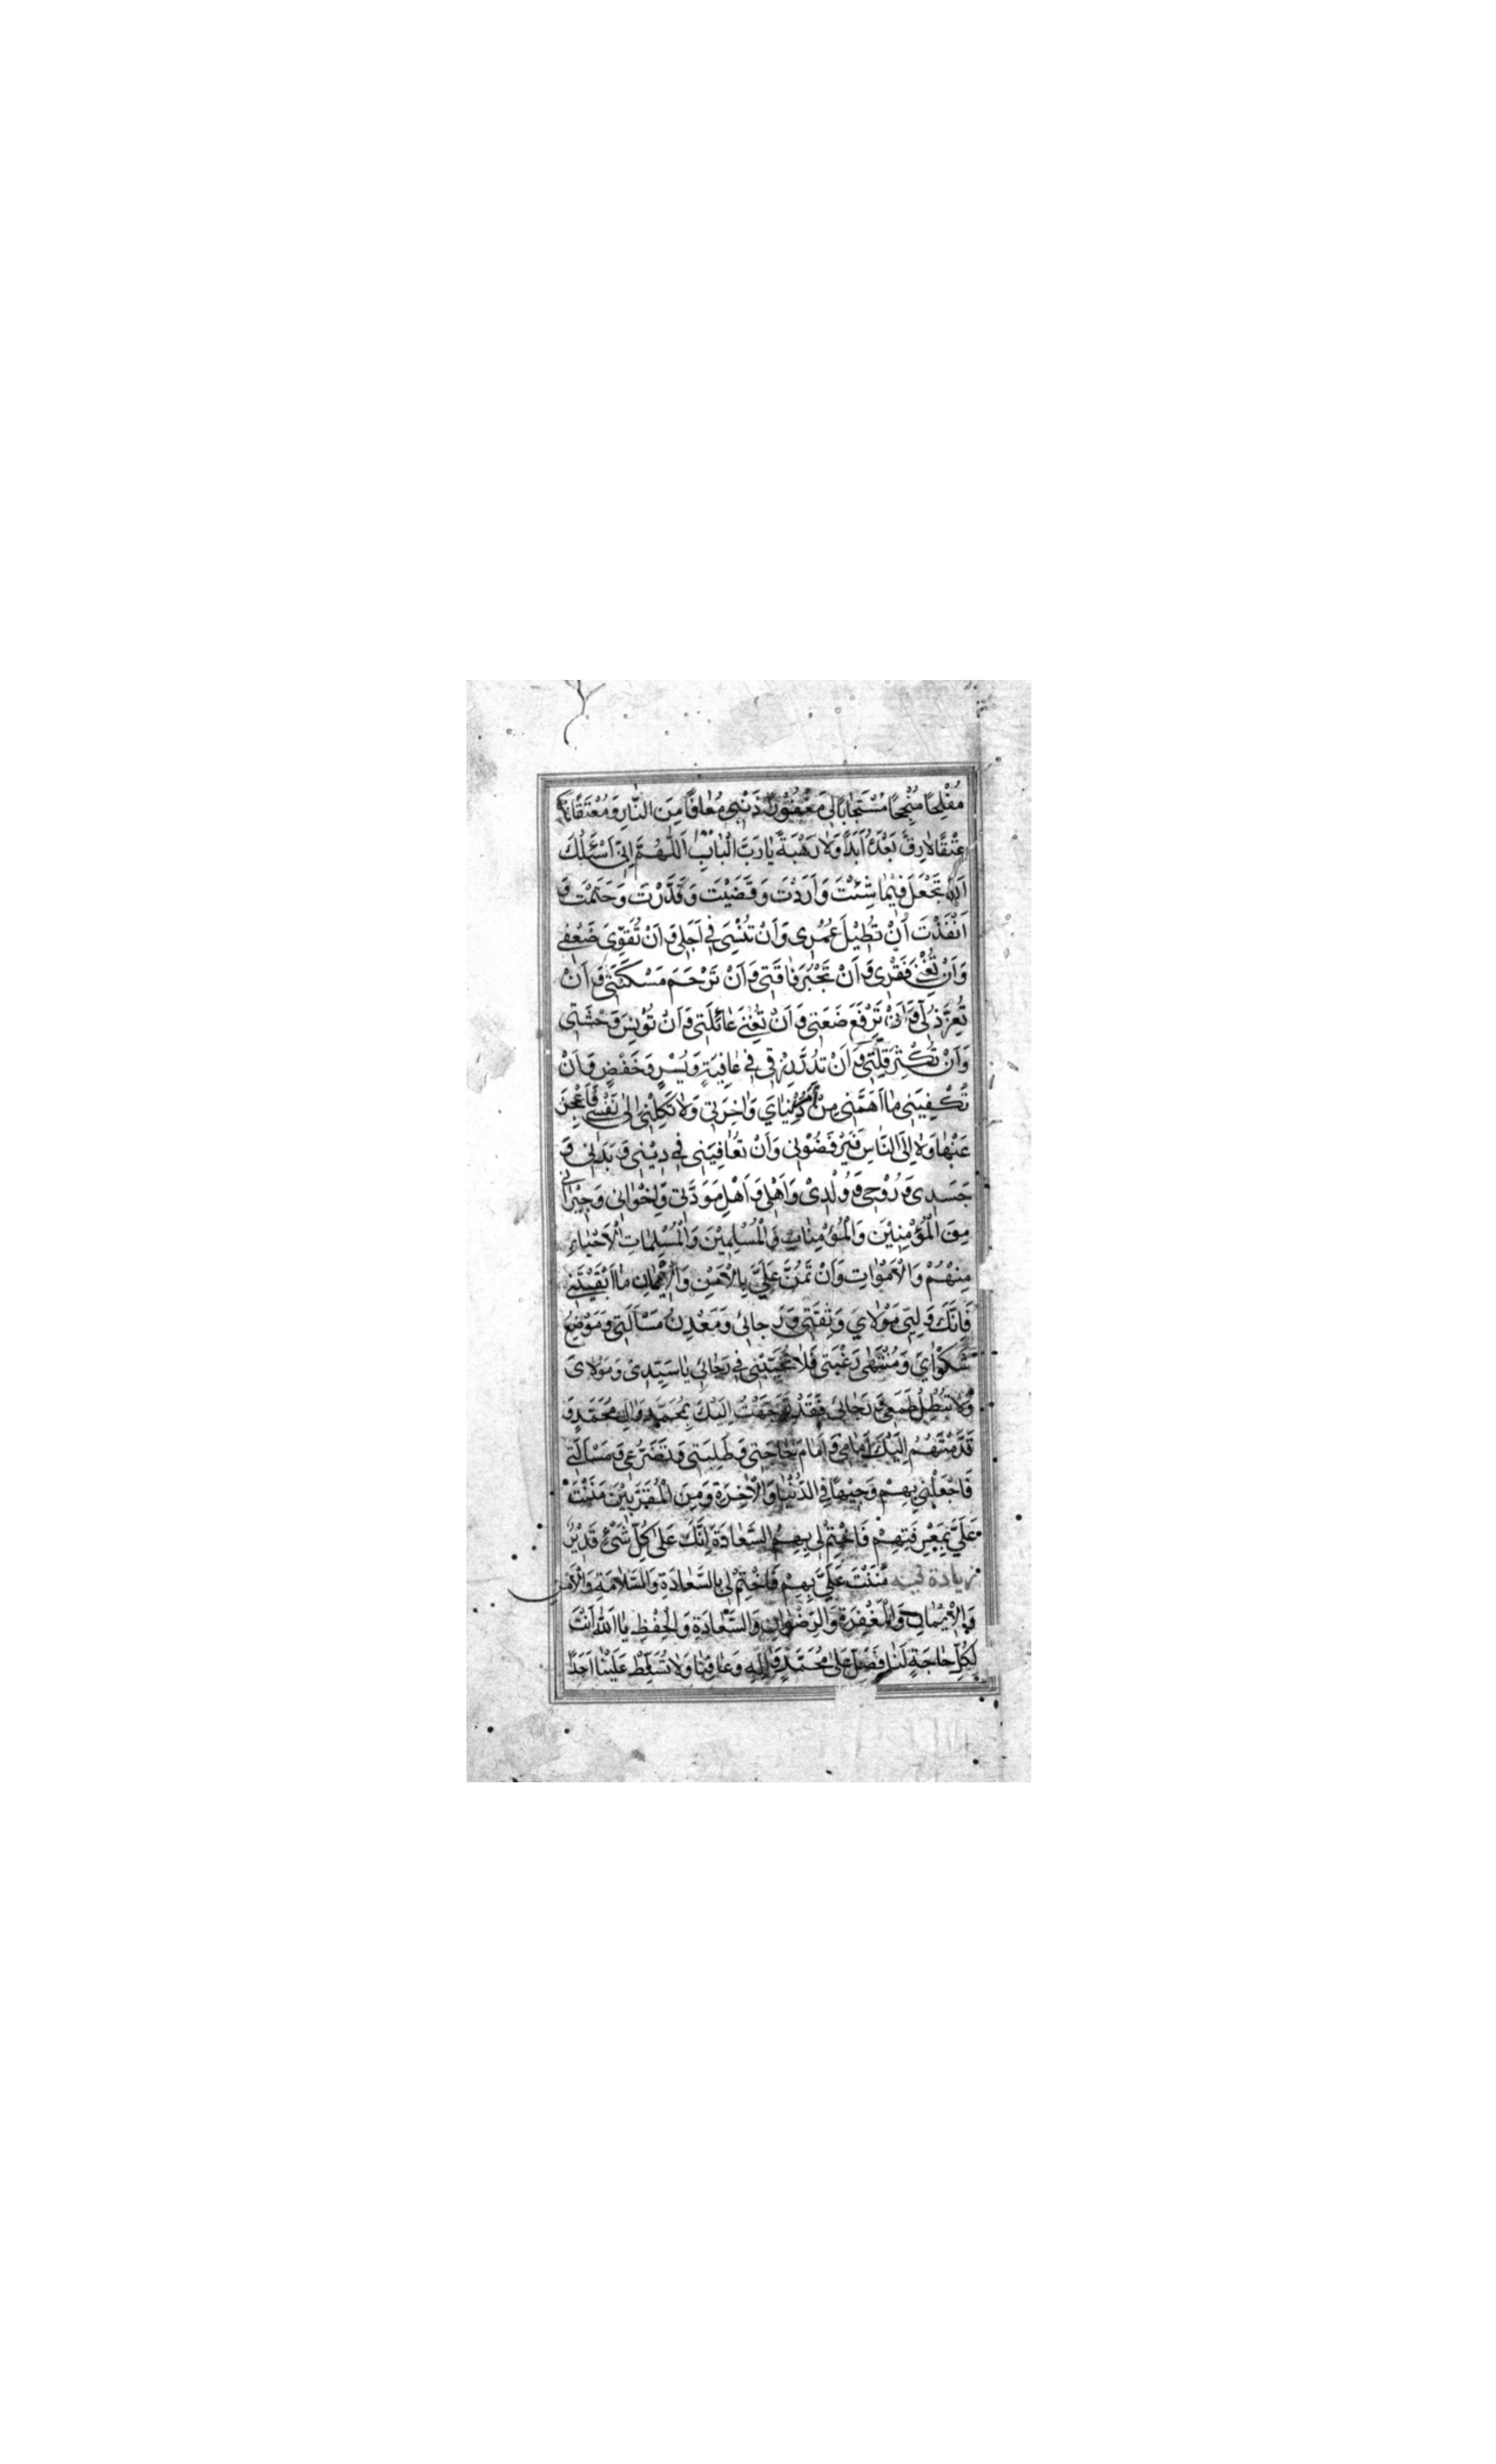 مُفْلِحًا مُنْجِحًا مُسْتَجَابًا لِى مَغْفُورًا ذَنْبِى مُعَافًا مِنَ النَّارِ وَمُعْتَقًا مِنْهَا
عِتْقًا لَا رِقَّ بَعْدَهُ اَبَدًا وَلَا رَهْبَةً يَا رَبَّ الْاَرْبَابِ اَللّٰهُمَّ اِنِّى اَسْئَلُكَ
اَنْ تَجْعَلَ فِيْمَا شِئْتَ وَ اَرَدْتَ وَ قَضَيْتَ وَ قَدَّرْتَ وَ حَتَمْتَ وَ
اَنْفَذْتَ اَنْ تُطِيْلَ عُمُرِى وَ اَنْ تُنْسِىَ فِى اَجَلِى وَ اَنْ تُقَوِّىَ ضَعْفِى
وَ اَنْ تُغْنِىَ فَقْرِى وَ اَنْ تَجْبُرَ فَاقَتِى وَ اَنْ تَرْحَمَ مَسْكَنَتِى وَ اَنْ
تُعِزَّ ذُلِّى وَ اَنْ تَرْفَعَ ضَعَتِى وَ اَنْ تُغْنِىَ عَائِلَتِى وَ اَنْ تُوْنِسَ وَحْشَتِى
وَ اَنْ تُكْثِرَ قِلَّتِى وَ اَنْ تُدِرَّ رِزْقِى فِى عَافِيَةٍ وَ يُسْرٍ وَ خَفْضٍ وَ اَنْ
تُكْفِيَنِى مَا اَهَمَّنِى مِنْ اَمْرِ دُنْيَاىَ وَ اٰخِرَتِى وَلَا تَكِلْنِى اِلٰى نَفْسِى فَاَعْجِزَ
عَنْهَا وَلَا اِلَى النَّاسِ فَيَرْفَضُوْنِى وَ اَنْ تُعَافِيَنِى فِى دِيْنِى وَ بَدَنِى وَ
جَسَدِى وَ رُوْحِى وَ وُلْدِىْ وَ اَهْلِى وَ اَهْلِ مَوَدَّتِى وَ اِخْوَانِى وَ جِيْرَانِى
مِنَ الْمُؤْمِنِيْنَ وَالْمُؤْمِنَاتِ وَالْمُسْلِمِيْنَ وَالْمُسْلِمَاتِ الْاَحْيَاءِ
مِنْهُمْ وَالْاَمْوَاتِ وَ اَنْ تَمُنَّ عَلَىَّ بِالْاَمْنِ وَالْاِيْمَانِ مَا اَبْقَيْتَنِى
فَاِنَّكَ وَلِيِّى مَوْلَاىَ وَ ثِقَتِى وَ رَجَائِى وَ مَعْدِنُ مَسْاَلَتِى وَ مَوْضِعُ
شَكْوَاىَ وَ مُنْتَهٰى رَغْبَتِى فَلَا تُخَيِّبْنِى فِى رَجَائِى يَا سَيِّدِىْ وَ مَوْلَاىَ
وَلَا تُبْطِلْ طَمَعِى وَ رَجَائِى فَقَدْ تَوَجَّهْتُ اِلَيْكَ بِمُحَمَّدٍ وَاٰلِ مُحَمَّدٍ وَ
قَدَّمْتُهُمْ اِلَيْكَ اَمَامِى وَ اَمَامَ حَاجَتِى وَ طَلِبَتِى وَ تَضَرُّعِى وَ مَسْاَلَتِى
فَاجْعَلْنِى بِهِمْ وَجِيْهًا فِى الدُّنْيَا وَالْاٰخِرَةِ وَ مِنَ الْمُقَرَّبِيْنَ مَنَنْتَ
عَلَىَّ بِمَعْرِفَتِهِمْ فَاخْتِمْ لِى بِهِمُ السَّعَادَةَ اِنَّكَ عَلٰى كُلِّ شَىْءٍ قَدِيْرٌ
زيادة فيه مَنَنْتَ عَلَىَّ بِهِمْ فَاخْتِمْ لِى بِالسَّعَادَةِ وَالسَّلَامَةِ وَالْاَمْنِ
وَالْاِيْمَانِ وَالْمَغْفِرَةِ وَالرِّضْوَانِ وَالسَّعَادَةِ وَالْحِفْظِ يَا اَللّٰهُ اَنْتَ
لِكُلِّ حَاجَةٍ لَنَا فَصَلِّ عَلٰى مُحَمَّدٍ وَاٰلِهِ وَ عَافِنَا وَلَا تُسَلِّطْ عَلَيْنَا اَحَدًا